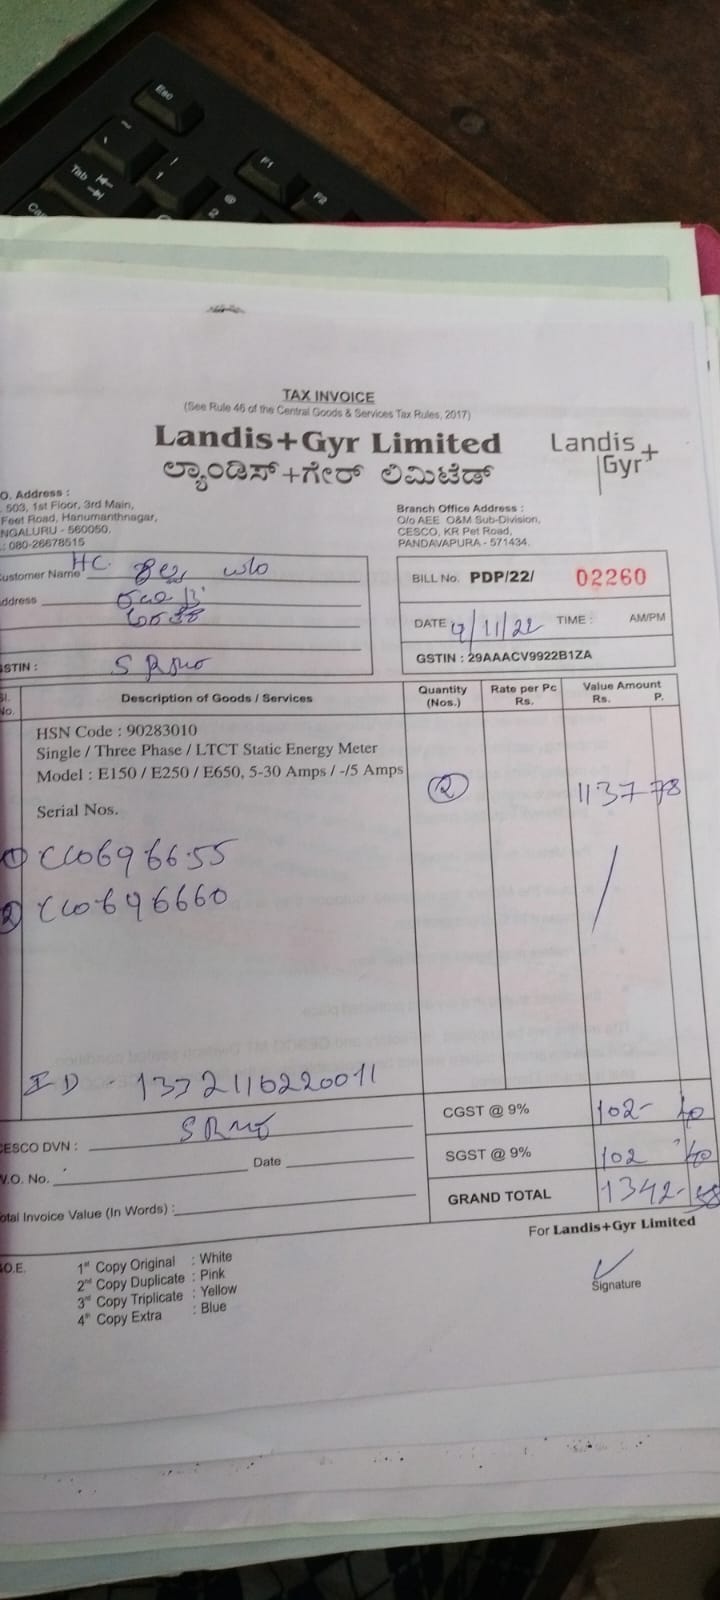 Esc
F1
F2
Tab
TAX INVOICE
(See Rule 46 of the Central Goods & Services Tax Rules, 2017)
Landis+Gyr Limited
ಲ್ಯಾಂಡಿಸ್+ಗೇರ್ ಲಿಮಿಟೆಡ್
Landis+
Gyr
O. Address :
503, 1st Floor, 3rd Main,
Feet Road, Hanumanthnagar,
NGALURU - 560050,
: 080-26678515
Branch Office Address :
O/o AEE O&M Sub-Division,
CESCO, KR Pet Road,
PANDAVAPURA - 571434.
ustomer Name HC
ddress
STIN :
BILL No. PDP/22/ 02260
DATE 9/11/22 TIME : AM/PM
GSTIN : 29AAACV9922B1ZA
Sl. No. Description of Goods / Services Quantity (Nos.) Rate per Pc Rs. Value Amount Rs. P.
HSN Code : 90283010
Single / Three Phase / LTCT Static Energy Meter
Model : E150 / E250 / E650, 5-30 Amps / -/5 Amps
2 1137 78
Serial Nos.
1 CC0696655
2 CC0696660
ID - 1372116220011
ESCO DVN :
CGST @ 9% 102- 40
.O. No. Date
SGST @ 9% 102 40
otal Invoice Value (In Words) :
GRAND TOTAL 1342- 58
For Landis+Gyr Limited
.O.E.
1st Copy Original : White
2nd Copy Duplicate : Pink
3rd Copy Triplicate : Yellow
4th Copy Extra : Blue
Signature